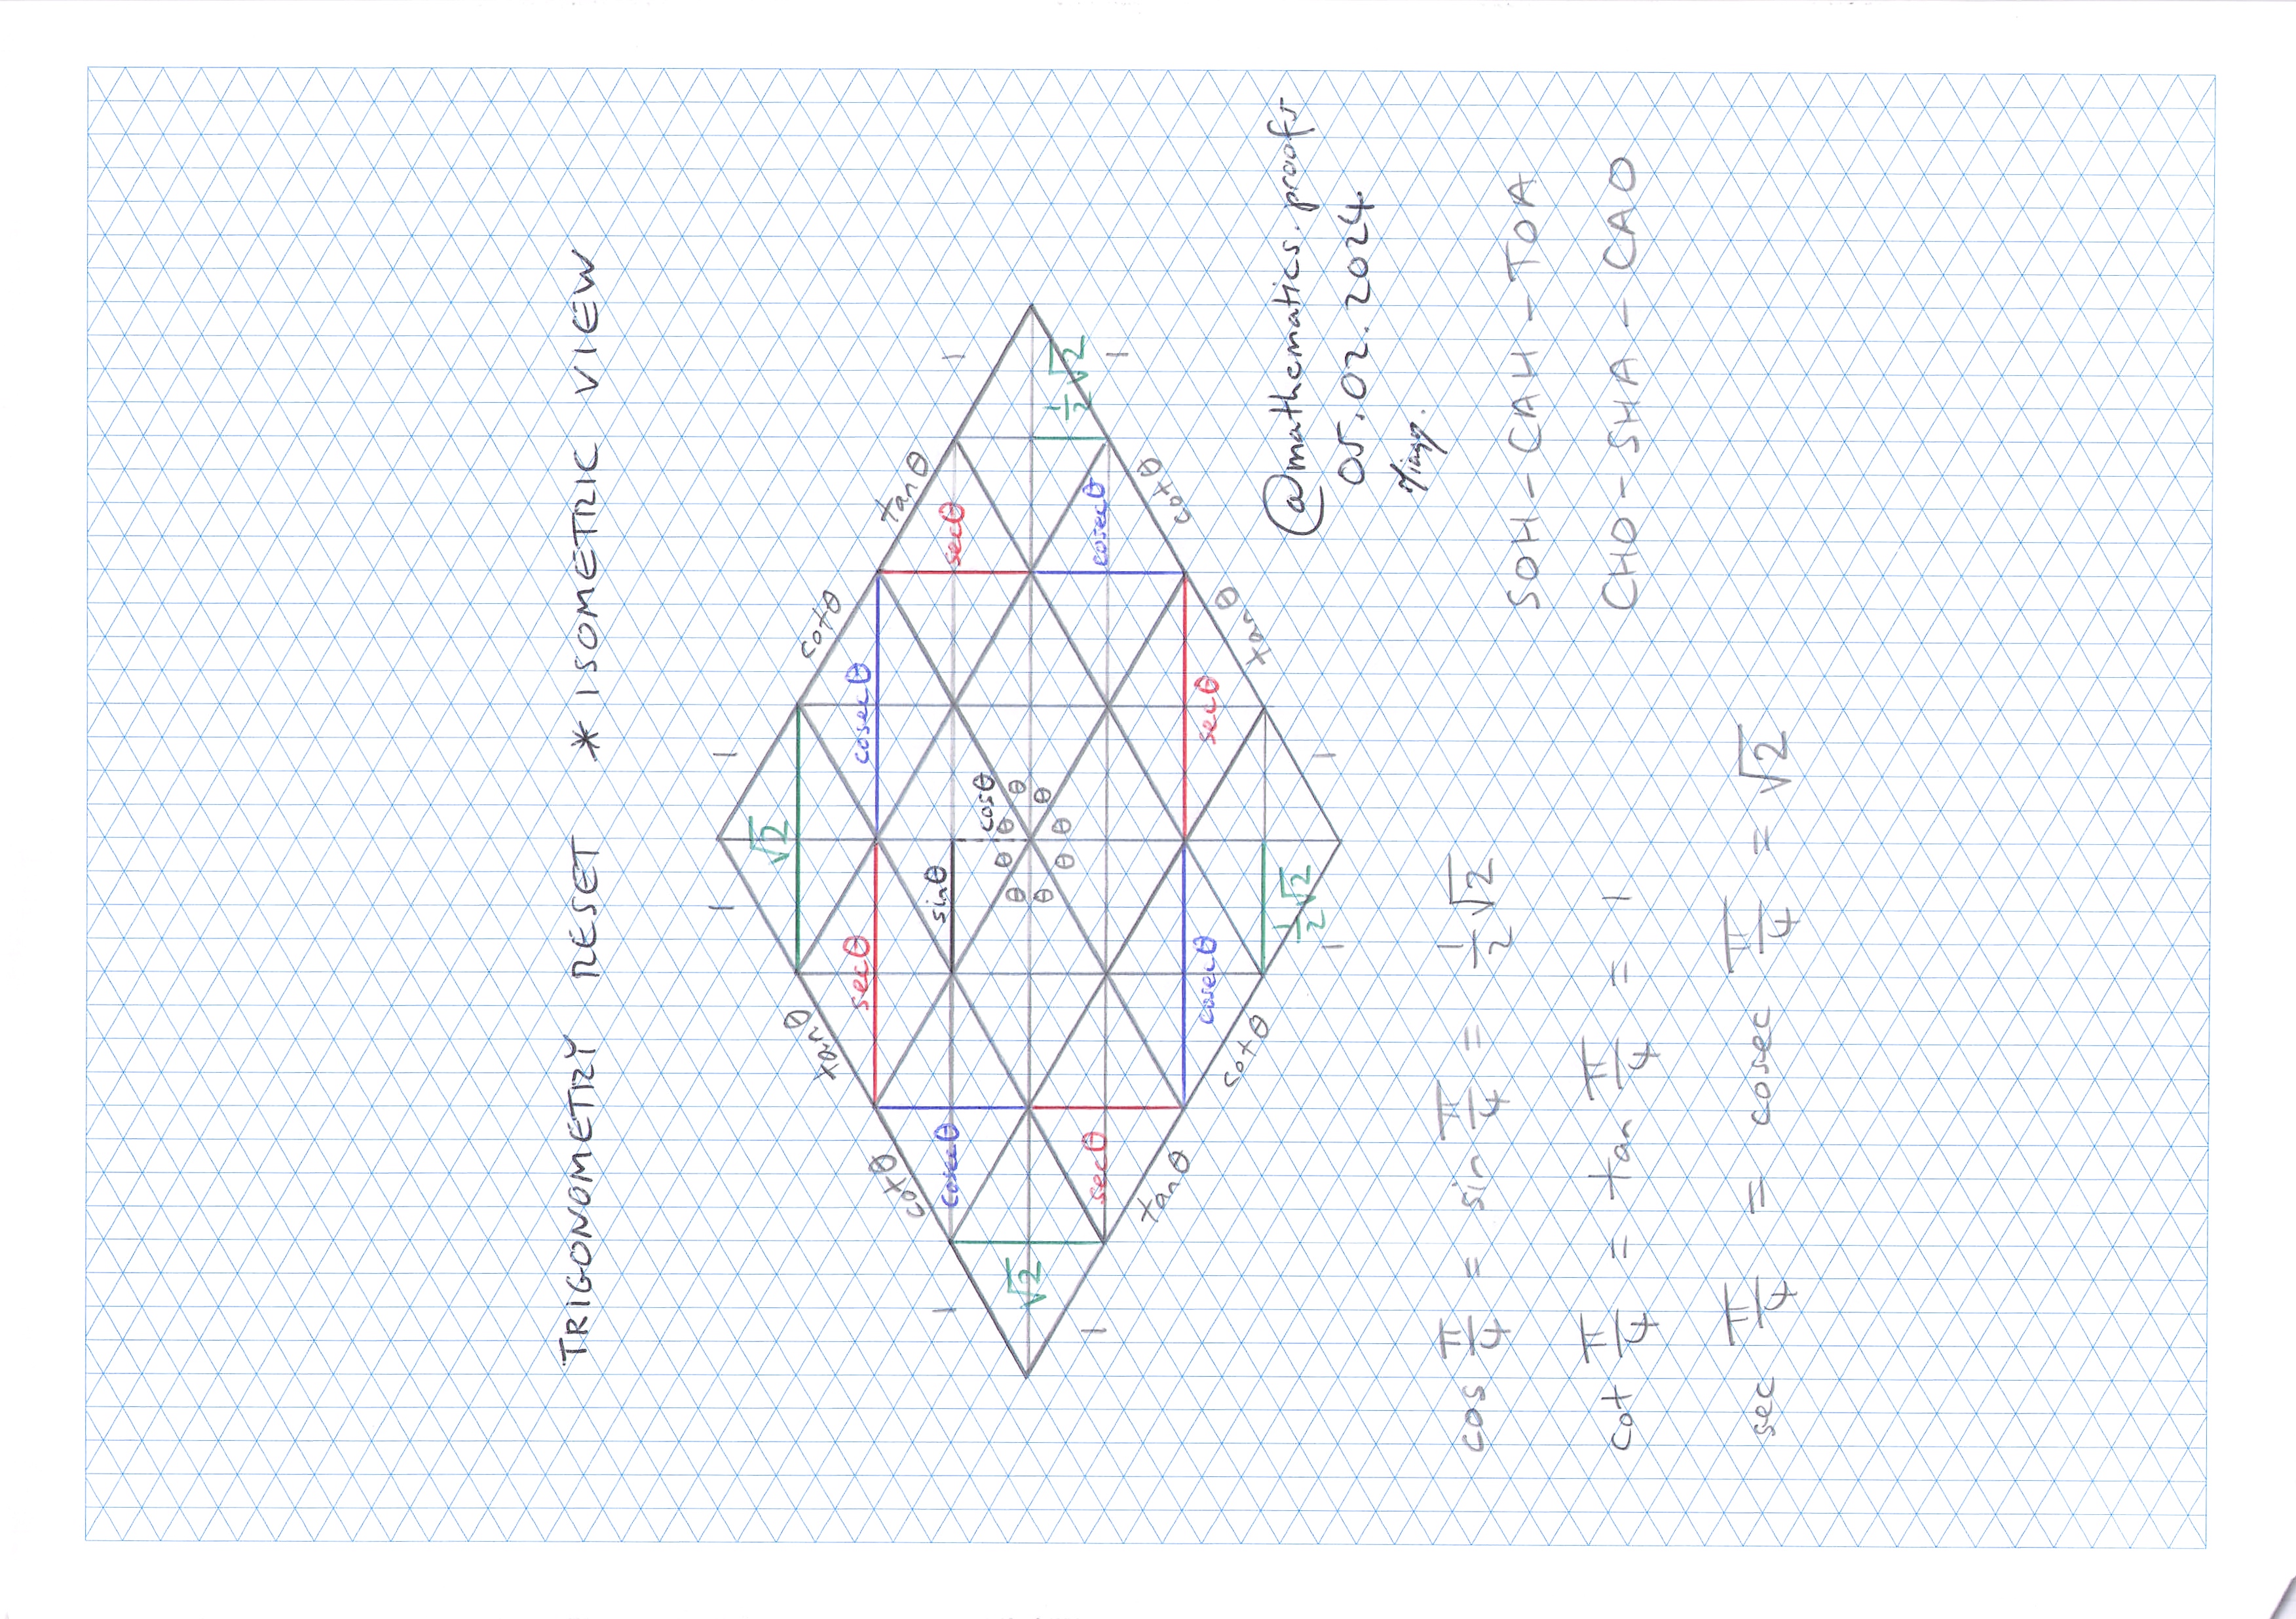 TRIGONOMETRY RESET * ISOMETRIC VIEW
1 1
√2
tanθ cotθ
secθ cosecθ
cotθ tanθ
1 cosecθ sinθ secθ 1
cosθ
θ θ θ θ
√2 θ θ θ θ
1/2 √2
1 secθ cosecθ 1
tanθ cotθ
cosecθ secθ
cotθ tanθ
1/2 √2
1 1
@mathematics.proofs
05.02.2024
cos π/4 = sin π/4 = 1/2 √2
SOH - CAH - TOA
cot π/4 = tan π/4 = 1
CHO - SHA - CAO
sec π/4 = cosec π/4 = √2